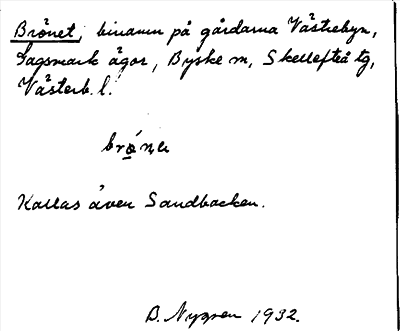 Brönet, binamn på gårdarna Västrebyn,
Gagsmark ägor, Byske sn, Skellefteå tg,
Västerb. l.
Kallas även Sandbacken.
B. Nygren 1932.